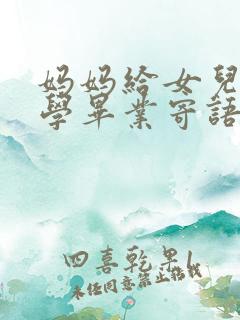 妈妈給女兒
學畢業寄語
四喜乾果1
未经同意禁止搭载